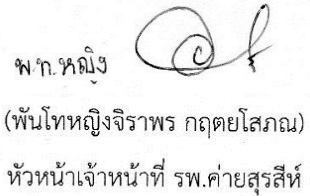 พ.ท.หญิง
(พันโทหญิงจิราพร กฤตยโสภณ)
หัวหน้าเจ้าหน้าที่ รพ.ค่ายสุรสีห์